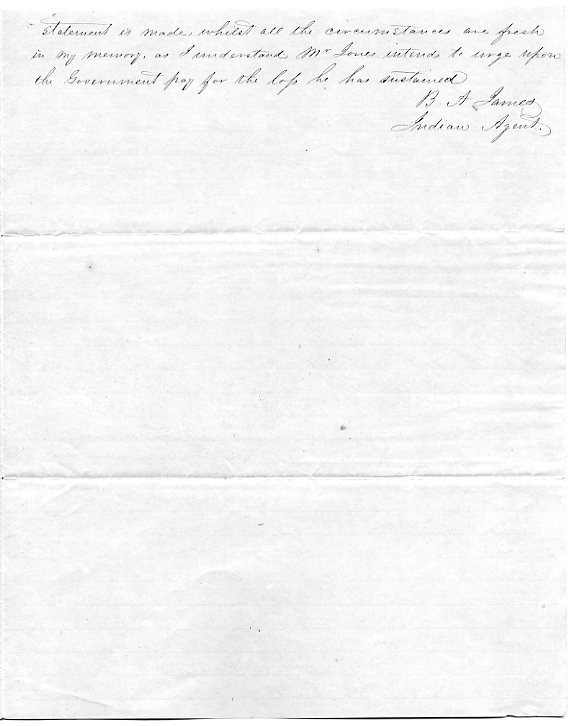 statement is made, whilst all the circumstances are fresh
in my memory, as I understand Mr Jones intends to urge upon
the Government pay for the loss he has sustained
B. A James
Indian Agent.